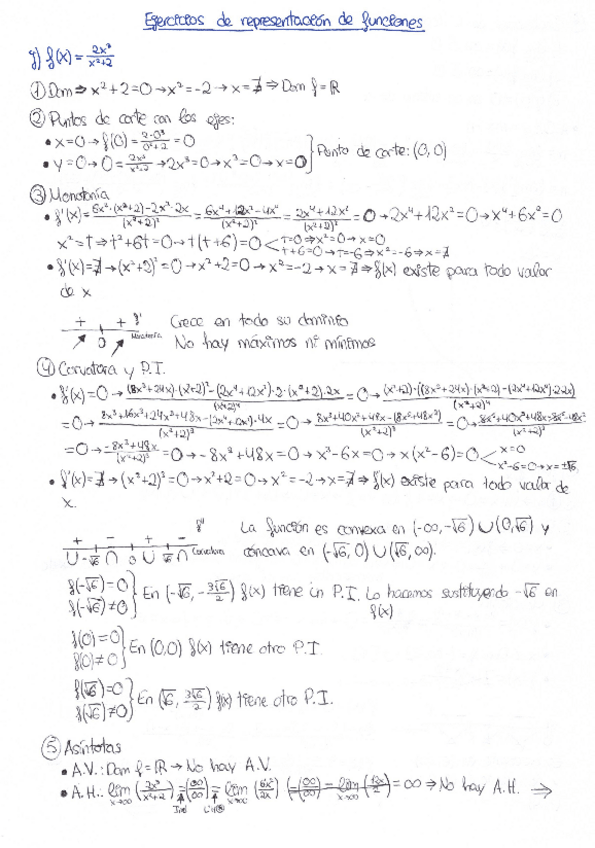 Ejercicios de representación de funciones
g) f(x) = 2x³/(x²+2)
① Dom ⇒ x²+2=0 → x²=-2 → x=∄ ⇒ Dom f = ℝ
② Puntos de corte con los ejes:
• x=0 → f(0) = (2·0³)/(0²+2) = 0
• y=0 → 0 = 2x³/(x²+2) → 2x³=0 → x³=0 → x=0 } Punto de corte: (0,0)
③ Monotonía
• f'(x) = (6x²·(x²+2)-2x³·2x)/(x²+2)² = (6x⁴+12x²-4x⁴)/(x²+2)² = (2x⁴+12x²)/(x²+2)² = 0 → 2x⁴+12x²=0 → x⁴+6x²=0
x²=t → t²+6t=0 → t(t+6)=0 < t=0 ⇒ x²=0 → x=0
t+6=0 → t=-6 → x²=-6 → x=∄
• f'(x)=∄ → (x²+2)²=0 → x²+2=0 → x²=-2 → x=∄ ⇒ f(x) existe para todo valor
de x
+ + f' Crece en todo su dominio
↗ 0 ↗ Monotonía No hay máximos ni mínimos
④ Curvatura y P.I.
• f''(x)=0 → ((8x³+24x)·(x²+2)²-(2x⁴+12x²)·2·(x²+2)·2x)/(x²+2)⁴ = 0 → ((x²+2)·((8x³+24x)·(x²+2)-(2x⁴+12x²)·2·2x))/(x²+2)⁴
=0 → (8x⁵+16x³+24x³+48x-(2x⁴+12x²)·4x)/(x²+2)³ = 0 → (8x⁵+40x³+48x-(8x⁵+48x³))/(x²+2)³ = 0 → (8x⁵+40x³+48x-8x⁵-48x³)/(x²+2)³
=0 → (-8x³+48x)/(x²+2)³ = 0 → -8x³+48x=0 → x³-6x=0 → x(x²-6)=0 < x=0
x²-6=0 → x=±√6
• f''(x)=∄ → (x²+2)³=0 → x²+2=0 → x²=-2 → x=∄ ⇒ f(x) existe para todo valor de
x.
+ - + - f'' La función es convexa en (-∞,-√6) ∪ (0,√6) y
∪ -√6 ∩ 0 ∪ √6 ∩ Curvatura cóncava en (-√6,0) ∪ (√6,∞).
f(-√6)=0
f(-√6)≠0 } En (-√6, -3√6/2) f(x) tiene un P.I. Lo hacemos sustituyendo -√6 en
f(x)
f(0)=0
f(0)≠0 } En (0,0) f(x) tiene otro P.I.
f(√6)=0
f(√6)≠0 } En (√6, 3√6/2) f(x) tiene otro P.I.
⑤ Asíntotas
• A.V.: Dom f = ℝ → No hay A.V.
• A.H.: lím x→∞ (2x³/(x²+2)) = (∞/∞) = lím x→∞ (6x²/2x) = (∞/∞) = lím x→∞ (12x/2) = ∞ ⇒ No hay A.H. ⇒
Ind L'Hô